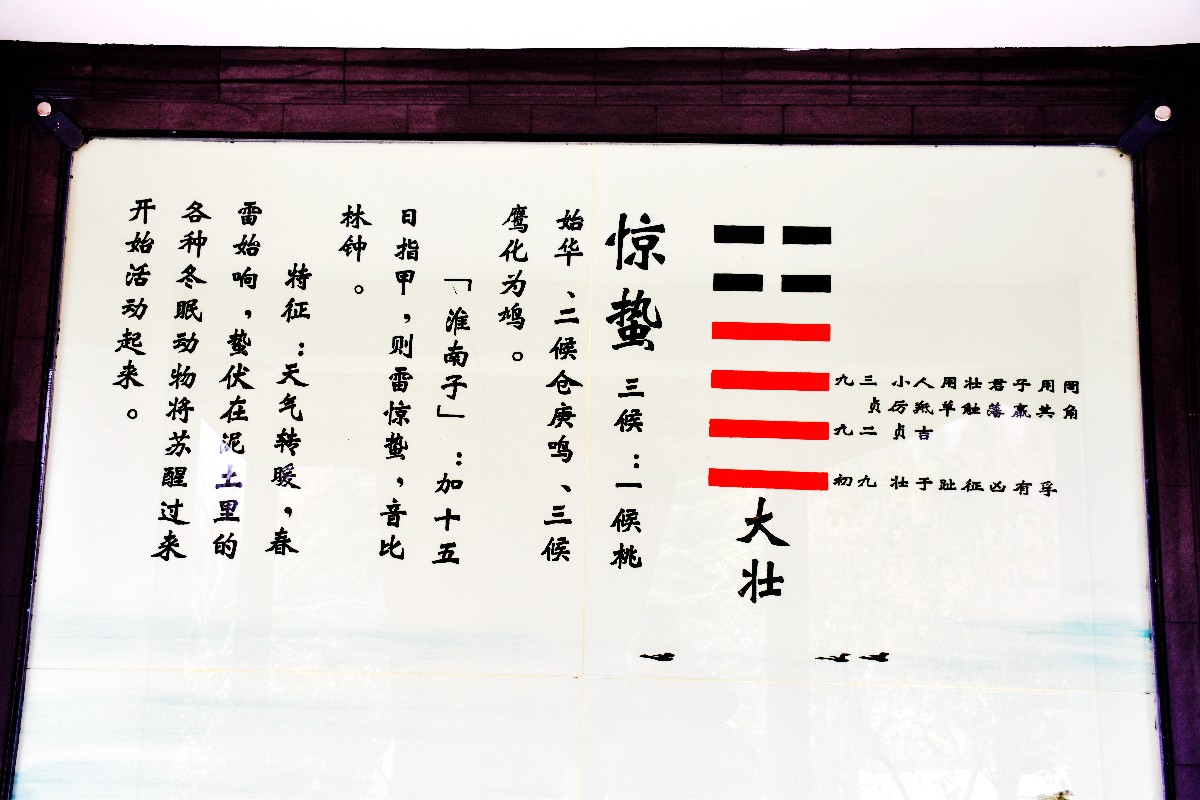 九三 小人用壮君子用罔
贞厉羝羊触藩羸其角
九二 贞吉
初九 壮于趾征凶有孚
大壮
惊蛰 三候：一候桃
始华、二候仓庚鸣、三候
鹰化为鸠。
「淮南子」：加十五
日指甲，则雷惊蛰，音比
林钟。
特征：天气转暖，春
雷始响，蛰伏在泥土里的
各种冬眠动物将苏醒过来
开始活动起来。